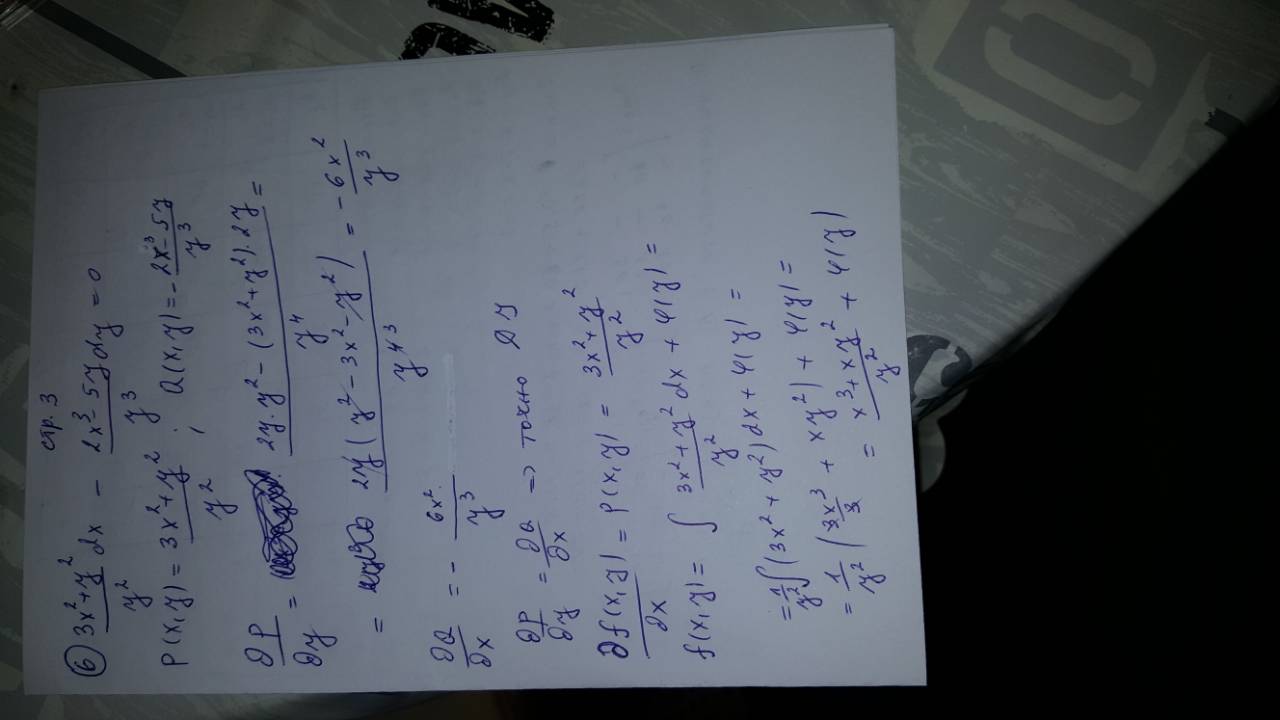 стр. 3
⑥ \frac{3x^2+y^2}{y^2} dx - \frac{2x^3-5y}{y^3} dy = 0
P(x,y) = \frac{3x^2+y^2}{y^2} ; Q(x,y) = -\frac{2x^3-5y}{y^3}
\frac{∂P}{∂y} = \frac{2y.y^2-(3x^2+y^2).2y}{y^4} =
= \frac{2y(y^2-3x^2-y^2)}{y^{4 3}} = \frac{-6x^2}{y^3}
\frac{∂Q}{∂x} = - \frac{6x^2}{y^3}
\frac{∂P}{∂y} = \frac{∂Q}{∂x} => точно ДУ
\frac{∂f(x,y)}{∂x} = P(x,y) = \frac{3x^2+y^2}{y^2}
f(x,y) = ∫ \frac{3x^2+y^2}{y^2} dx + φ(y) =
= \frac{1}{y^2} ∫(3x^2+y^2)dx + φ(y) =
= \frac{1}{y^2} (\frac{3x^3}{3} + xy^2) + φ(y) =
= \frac{x^3+xy^2}{y^2} + φ(y)